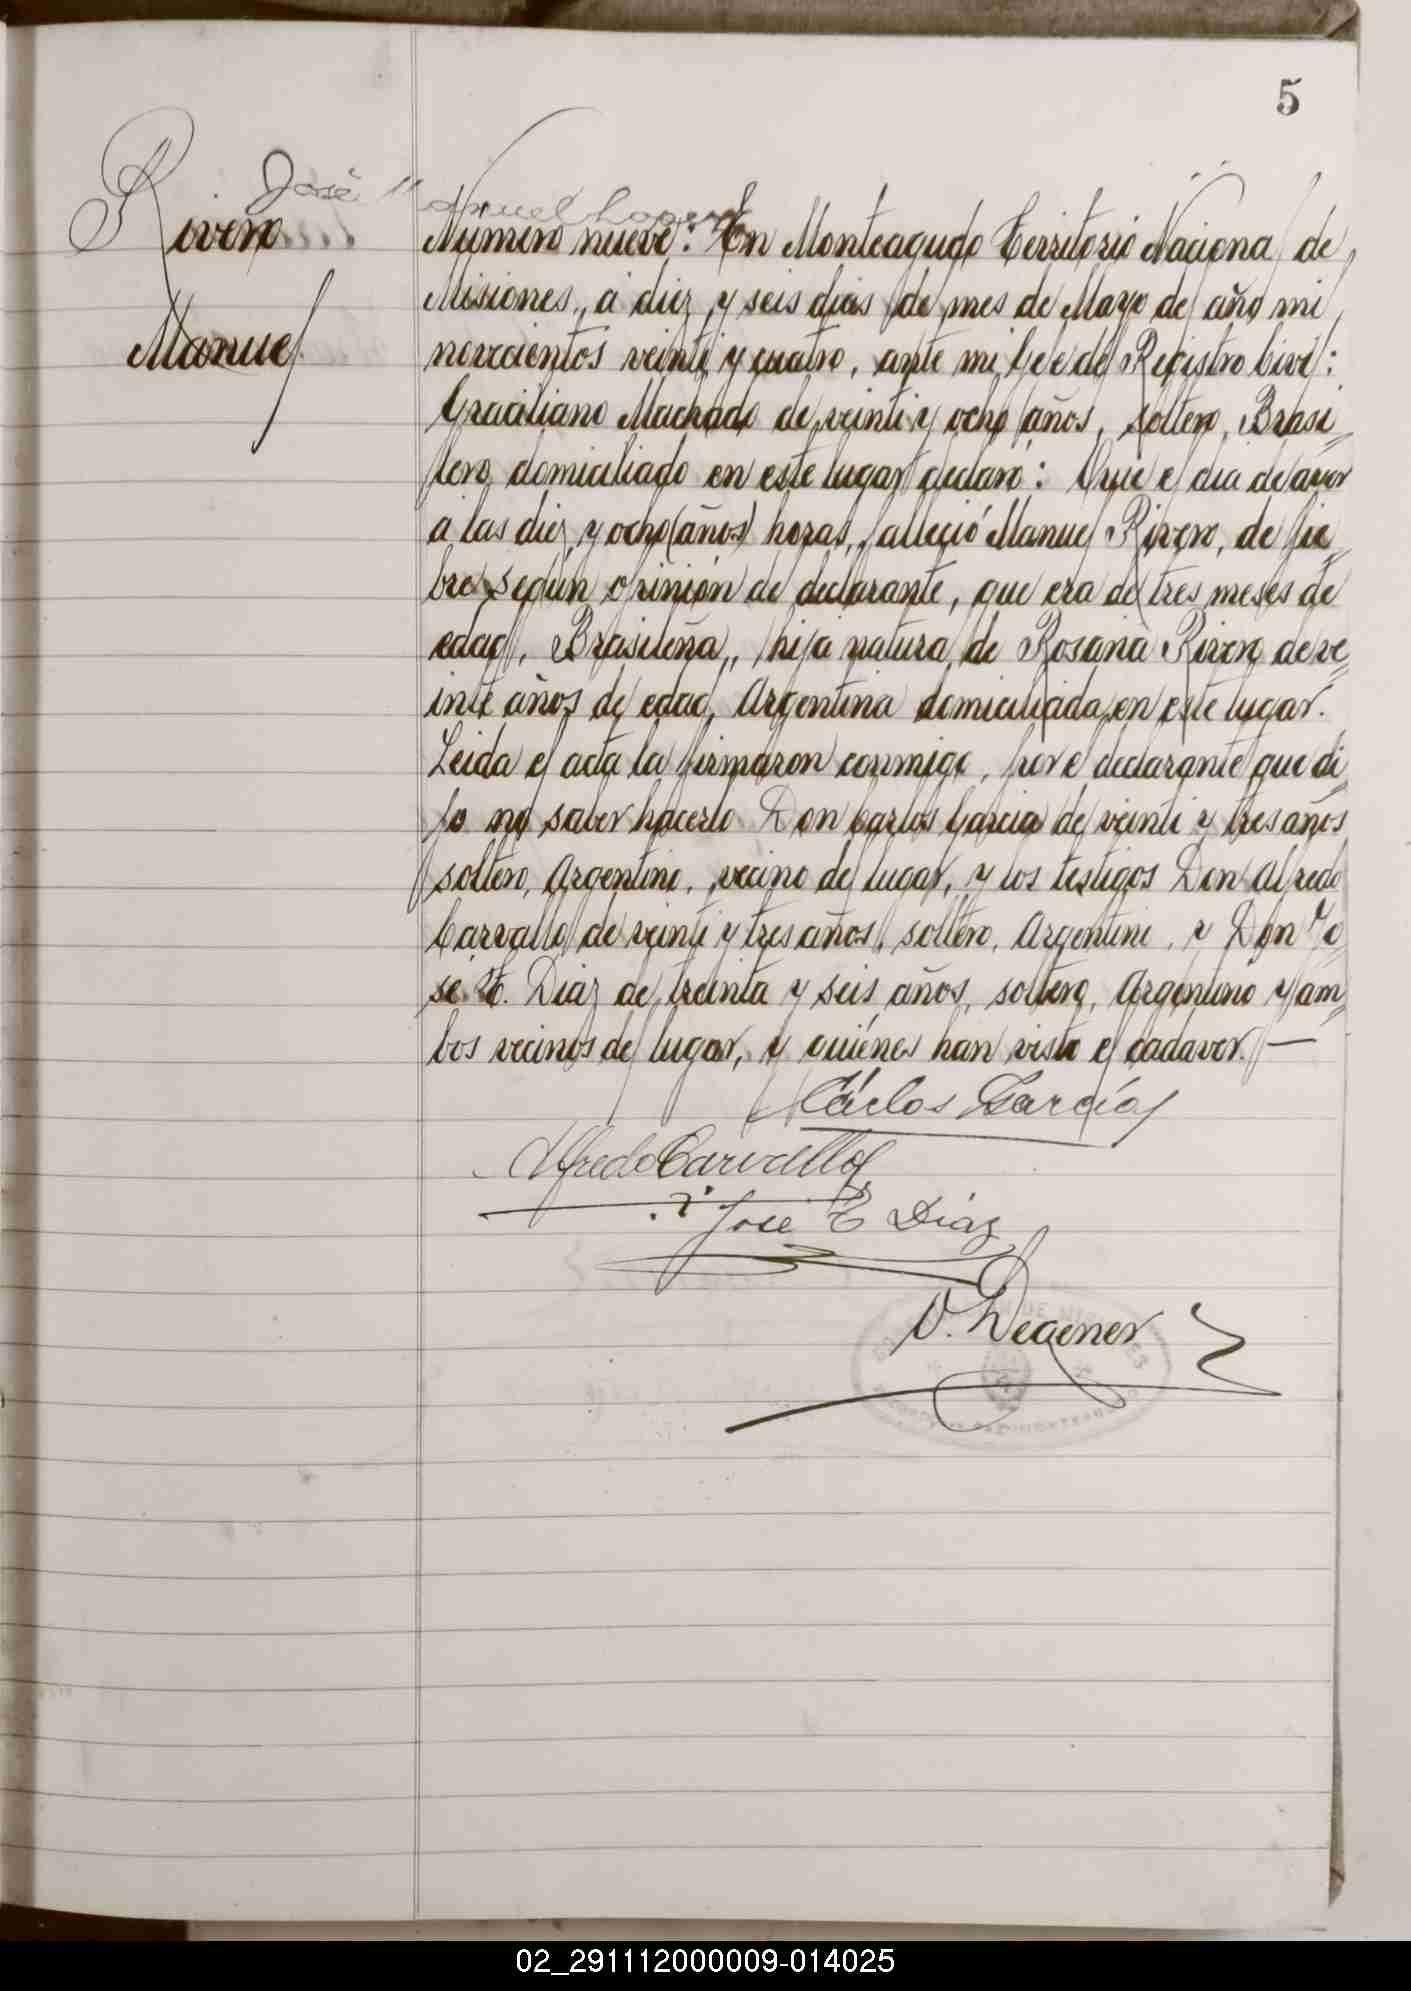 5
José Manuel
Rivero
Manuel
Número nueve: En Monteagudo Territorio Nacional de
Misiones, a diez y seis dias del mes de Mayo del año mil
novecientos veinte y cuatro, ante mi Jefe del Registro Civil:
Graciliano Machado de veinte y ocho años, soltero, Brasi=
lero, domiciliado en este lugar declaró: Que el dia de ayer
a las diez y ocho (años) horas, falleció Manuel Rivero, de fie=
bre segun opinión del declarante, que era de tres meses de
edad, Brasileña, hija natural de Rosana Rivero de ve=
inte años de edad, Argentina domiciliada en este lugar.
Leida el acta la firmaron conmigo, por el declarante que di
jo no saber hacerlo Don Carlos Garcia de veinte y tres años
soltero, Argentino, vecino del lugar, y los testigos Don Alfredo
Carvallo de veinte y tres años, soltero, Argentino, y Don Jo=
sé E. Diaz de treinta y seis años, soltero, Argentino y am=
bos vecinos del lugar, y quiénes han visto el cadaver. —
Cárlos García
Alfredo Carvallo
José E Diaz
V. Degener
02_291112000009-014025